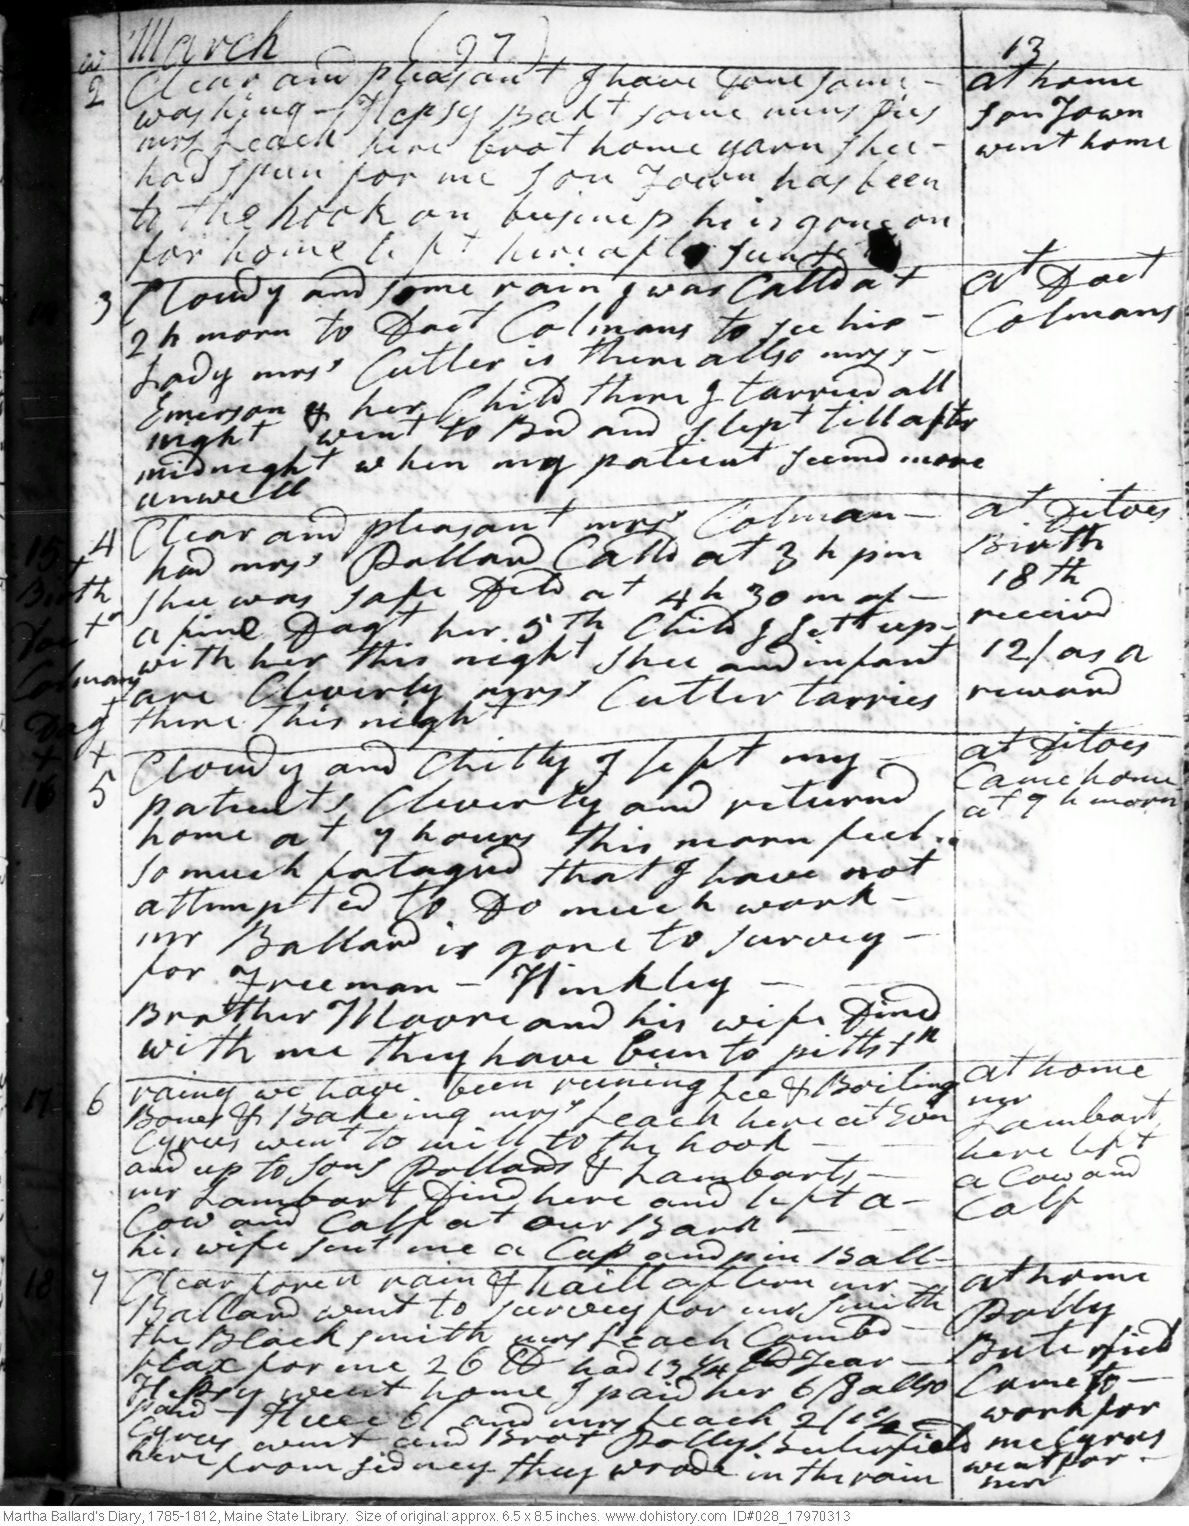 March (97) 13
2 Clear and pleasant I have done some at home
washing - Hepsy Bakt some mins pies son Town
mrs Leach here brot home yarn shee went home
had spun for me son Town has been
to the hook on business he is gone on
for home left here after sunt
3 Cloudy and some rain I was Calld at at Doct
2 h morn to Doct Colmans to see his Colmans
Lady mrs Cutler is there allso mrs
Emerson & her Child there I tarried all
night went to Bed and slept till after
midnight when my patient seemd more
unwell
4 Clear and pleasant mrs Colman at ditoes
had mrs Pollard Calld at 3 h pm Birth
Shee was safe Deld at 4 h 30 m of 18th
a fine Dagt her 5th Child I sett up received
with her this night shee and infant 12/ as a
are Cleverly mrs Cutler tarries reward
there this night
15 Birth Doct Colmans Dagt
+ +
16 5 Cloudy and Chilly I left my at ditoes
patients Cleverly and returnd Came home
home at 9 hours this morn feel at 9 h morn
so much fatagud that I have not
attempted to Do much work -
mr Ballard is gone to survey -
for Freeman - Hinkley -
Brother Moore and his wife Dined
with me they have been to pittstn
17 6 rainy we have been Lee & Boiling at home
Bones & Bakeing mrs Leach here at Evn mr
Cyrus went to mill to the hook Lambart
and up to sons Pollards & Lambarts - here left
mr Lambart Dind here and left a - a Cow and
Cow and Calf at our Barn - Calf
his wife sent me a Cap and pin Ball -
18 7 Clear foren rain & haill aftern mr at home
Ballard went to survey for mr Smith Dolly
the Black smith mrs Leach Combd Buterfield
flax for me 26 lb had 13 3/4 Came to
Hepsy went home I paid her 6/8 allso work for
paid 6/ and mrs Leach 2/ me Cyrus
Cyrus went and Brot Dolly Buterfield went for
here from Sidney they wrode in the rain her
Martha Ballard's Diary, 1785-1812, Maine State Library. Size of original: approx. 6.5 x 8.5 inches. www.dohistory.com ID#028_17970313